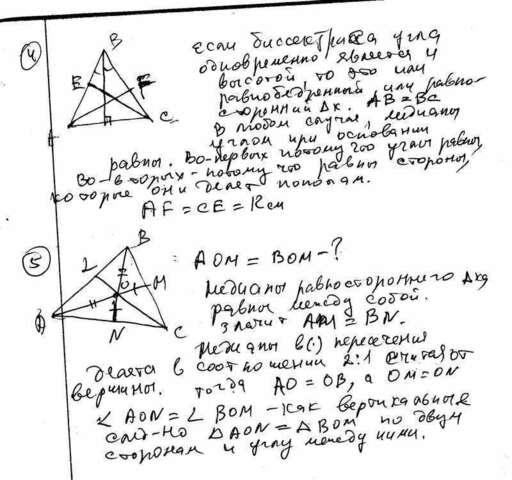 4
B
E
F
C
Если биссектриса угла
одновременно является и
высотой, то это или
равнобедренный или равно-
сторонний Δк. AB = BC
В любом случае, медианы
углом при основании
равны. Во-первых потому что углы равны,
Во-вторых - потому что равны стороны,
которые они делет пополам.
AF = CE = Rсм
5
B
L
O
M
A
N
C
: AOM = BOM - ?
Медианы равностороннего Δка
равны между собой.
Значит AM = BN.
Медианы в (·) пересечения
делятся в соотношении 2:1 считая от
вершины. тогда AO = OB, а OM = ON
∠ AON = ∠ BOM - как вертикальные
след-но ΔAON = ΔBOM по двум
сторонам и углу между ними.